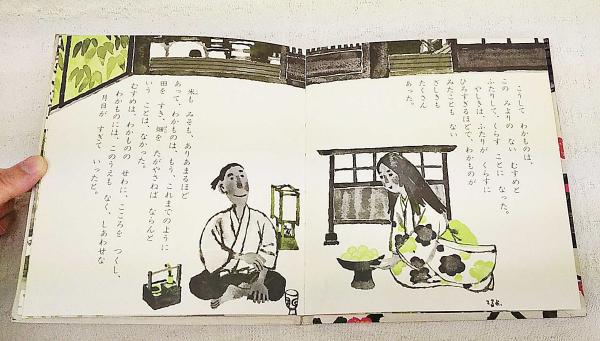 こうして わかものは、
この みよりの ない むすめと
ふたりして、くらす ことに なった。
やしきは、ふたりが くらすに
ひろすぎるほどで、わかものが
みたことも ない
ざしきも
たくさん
あった。
米も みそも、ありあまるほど
あって、わかものは、もう、これまでのように
田を すき、畑を たがやさねば ならんと
いう ことは、なかった。
むすめは、わかものの せわに、こころを つくし、
わかものには、このうえも なく、しあわせな
月日が すぎて いったと。